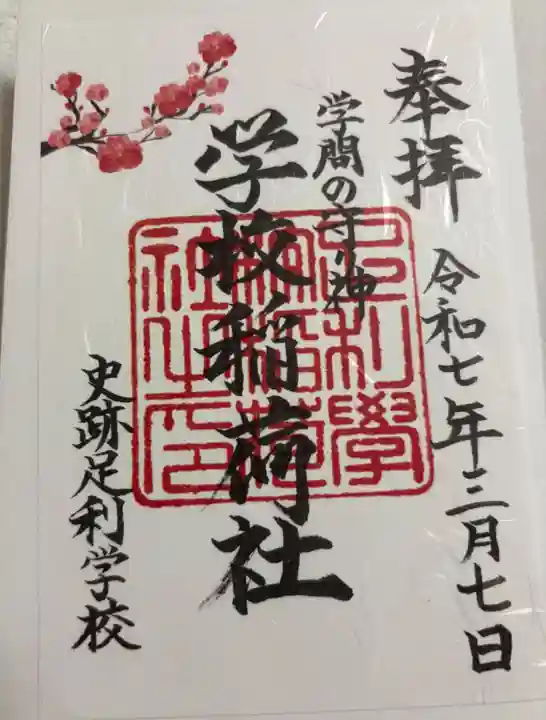 奉拝
令和七年三月七日
学問の守り神
学校稲荷社
史跡足利学校
足利學
校稲荷
社之印